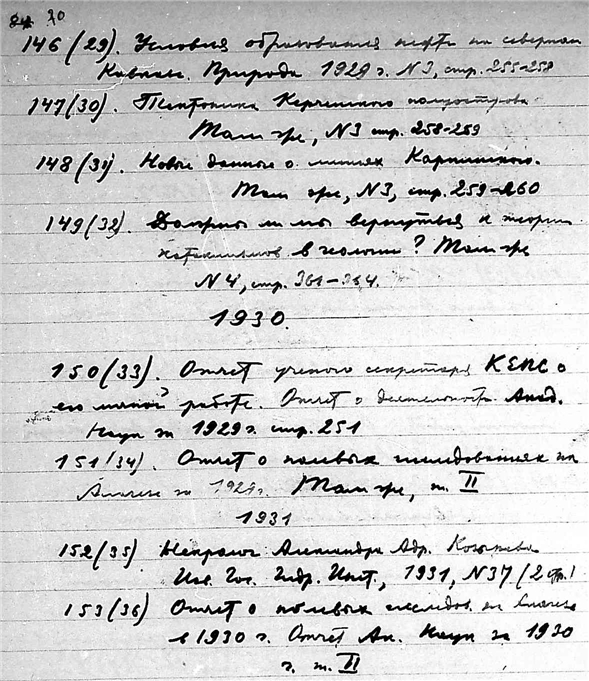 84 70
146 (29). Условия образования нефти на северном
Кавказе. Природа 1929 г. N3, стр. 255-258
147 (30). Тектоника Керченского полуострова
Там же, N3 стр. 258-259
148 (31). Новые данные о линиях Карпинского.
Там же, N3, стр. 259-260
149 (32). Должны ли мы вернуться к теории
катаклизмов в геологии? Там же
N4, стр. 361-364.
1930.
150 (33). Отчет ученого секретаря КЕПС о
его личной работе. Отчет о деятельности Акад.
Наук за 1929 г. стр. 251
151 (34). Отчет о полевых исследованиях на
за 1929 г. Там же, т. II
1931
152 (35) Некролог Александра Адр.
Изв. Гос. Гидр. Инст., 1931, N37 (2 стр.)
153 (36) Отчет о полевых исследов. на
в 1930 г. Отчет Ак. Наук за 1930
г. т. II